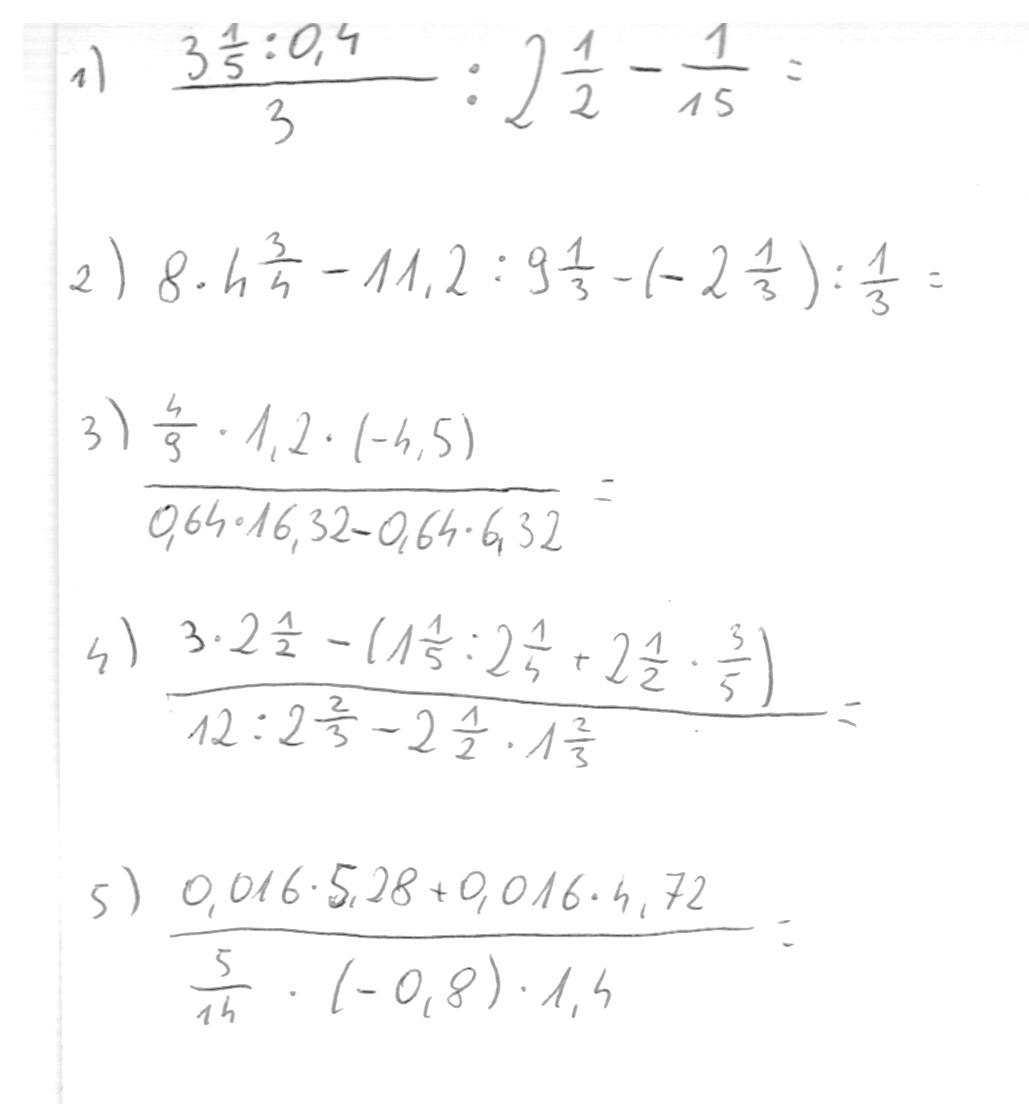 1) (3 1/5 : 0,4)/3 : 2 1/2 - 1/15 =
2) 8 · 4 3/4 - 11,2 : 9 1/3 - (-2 1/3) : 1/3 =
3) 4/9 · 1,2 · (-4,5)
0,64·16,32-0,64·6,32 =
4) 3·2 1/2 - (1 1/5 : 2 1/4 + 2 1/2 · 3/5)
12 : 2 2/3 - 2 1/2 · 1 2/3 =
5) 0,016·5,28+0,016·4,72
5/14 · (-0,8) · 1,4 =